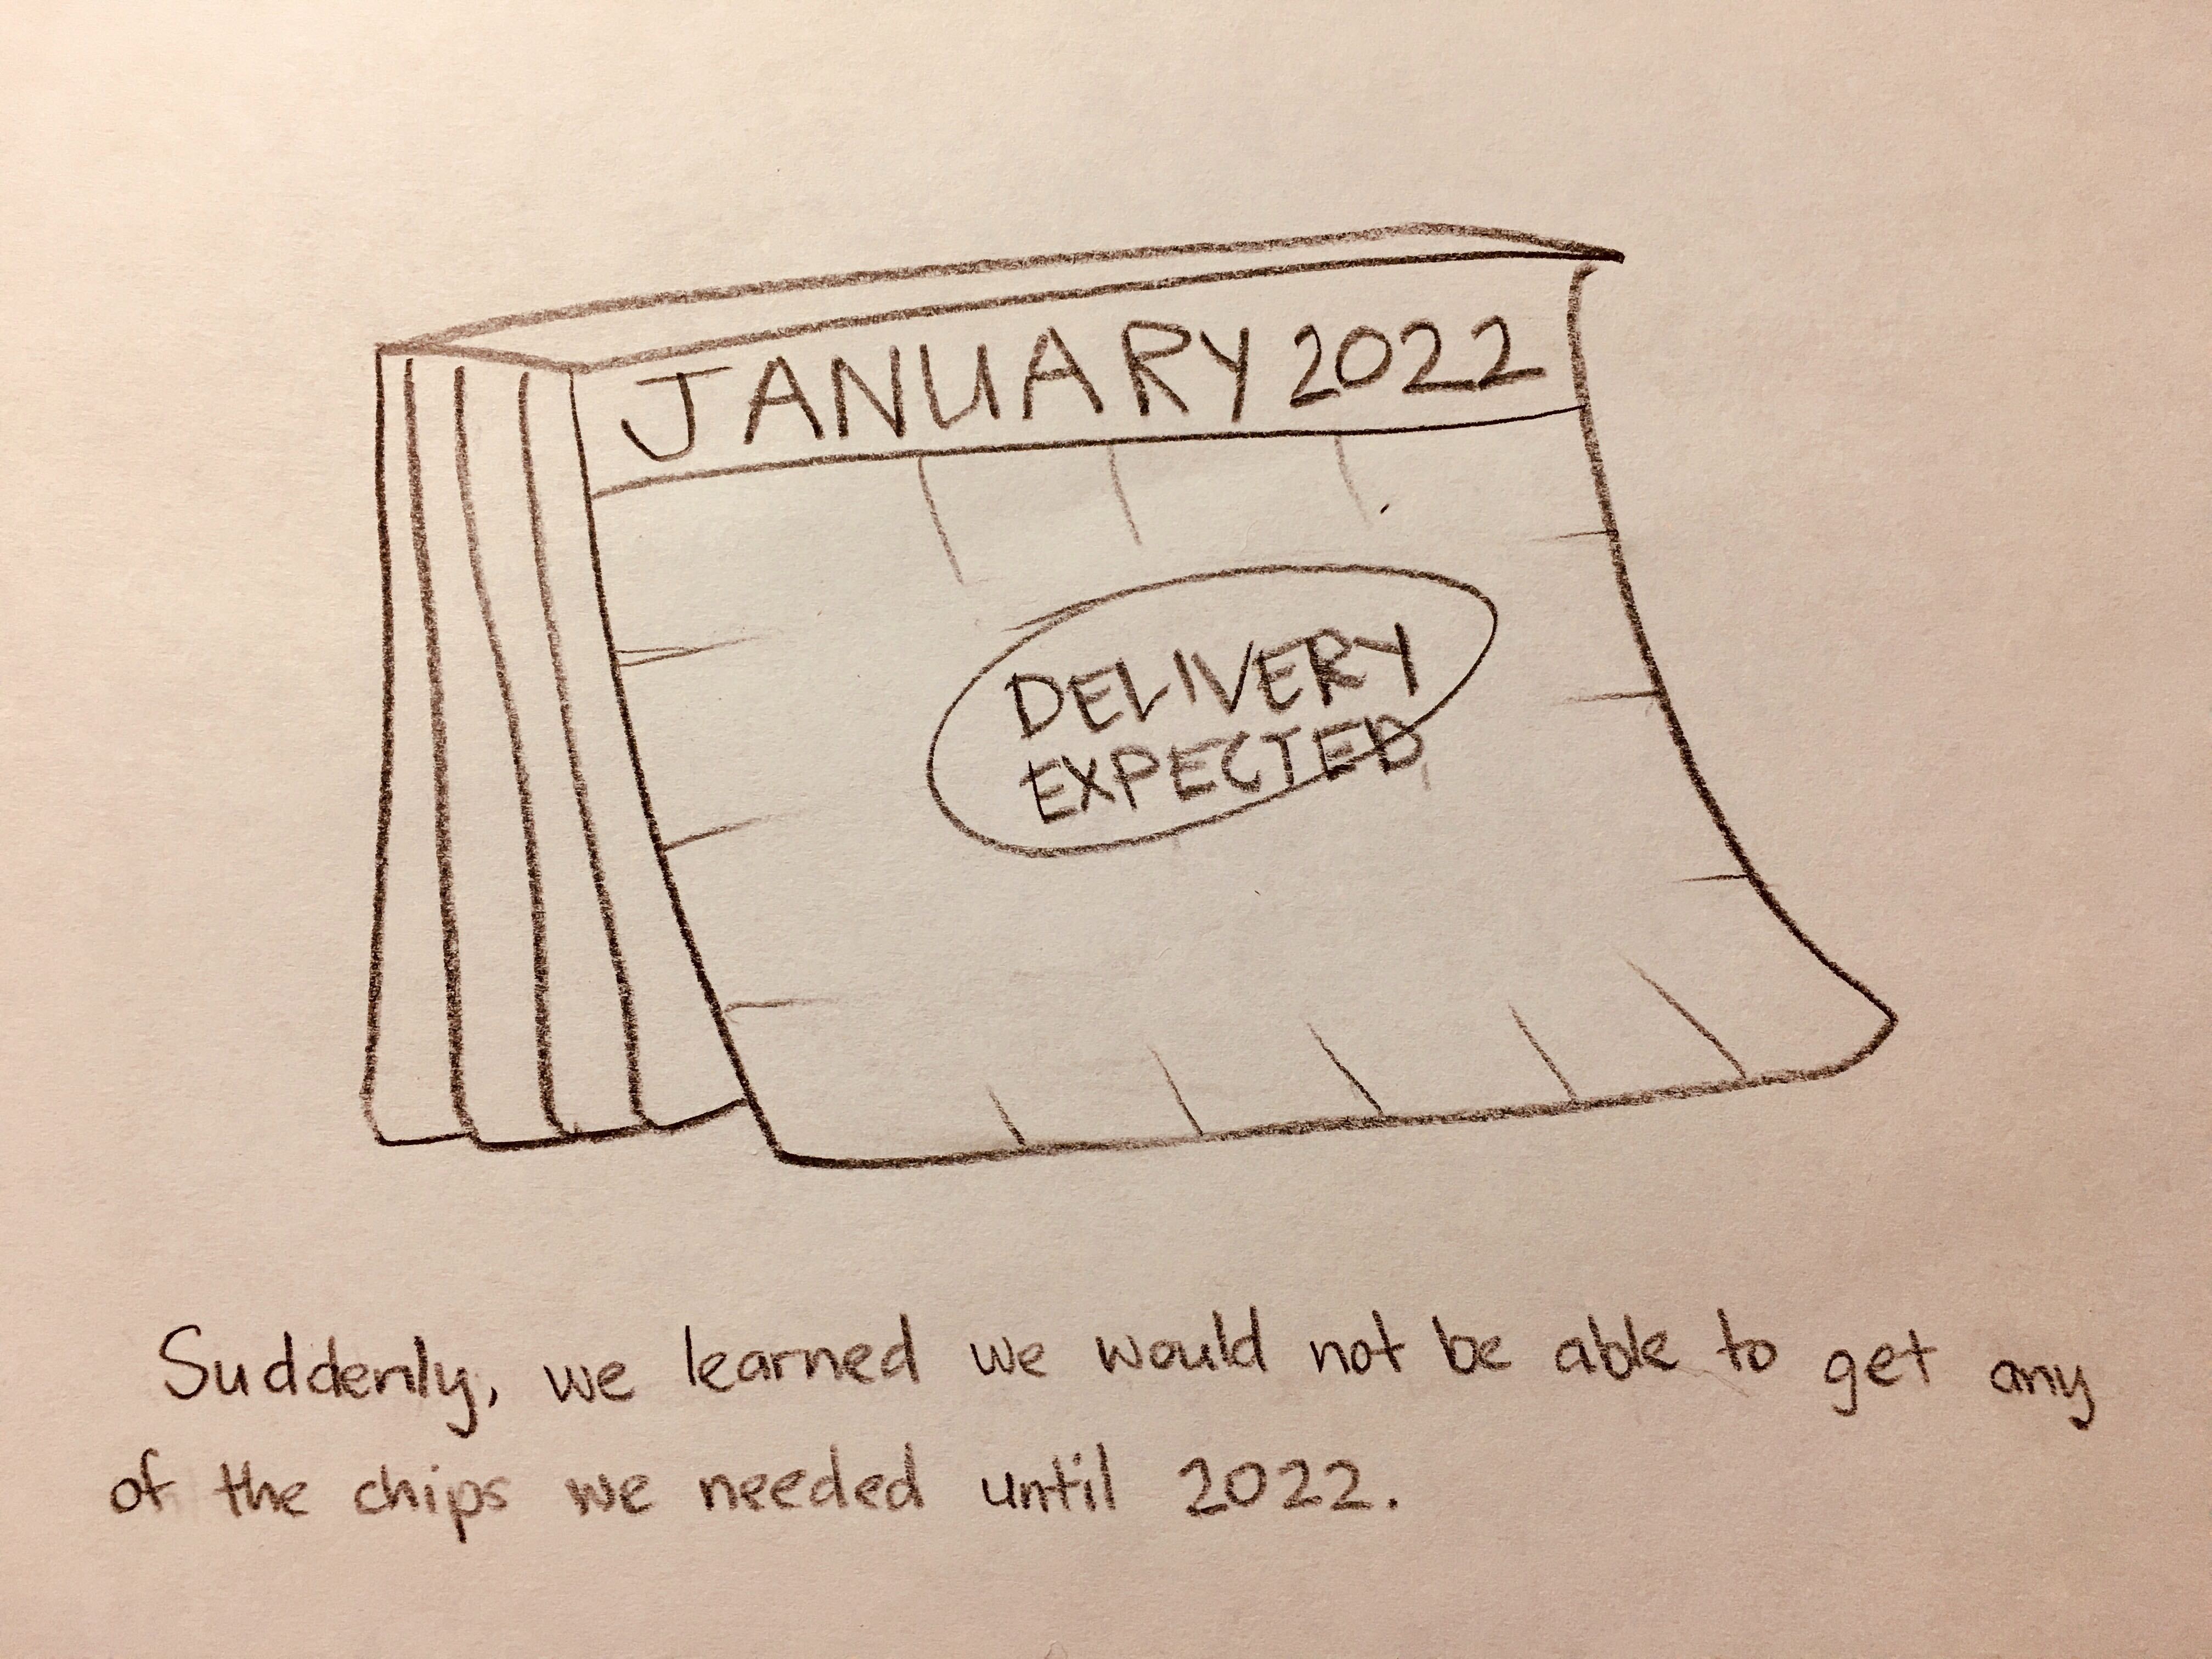 JANUARY 2022
DELIVERY
EXPECTED
Suddenly, we learned we would not be able to get any
of the chips we needed until 2022.